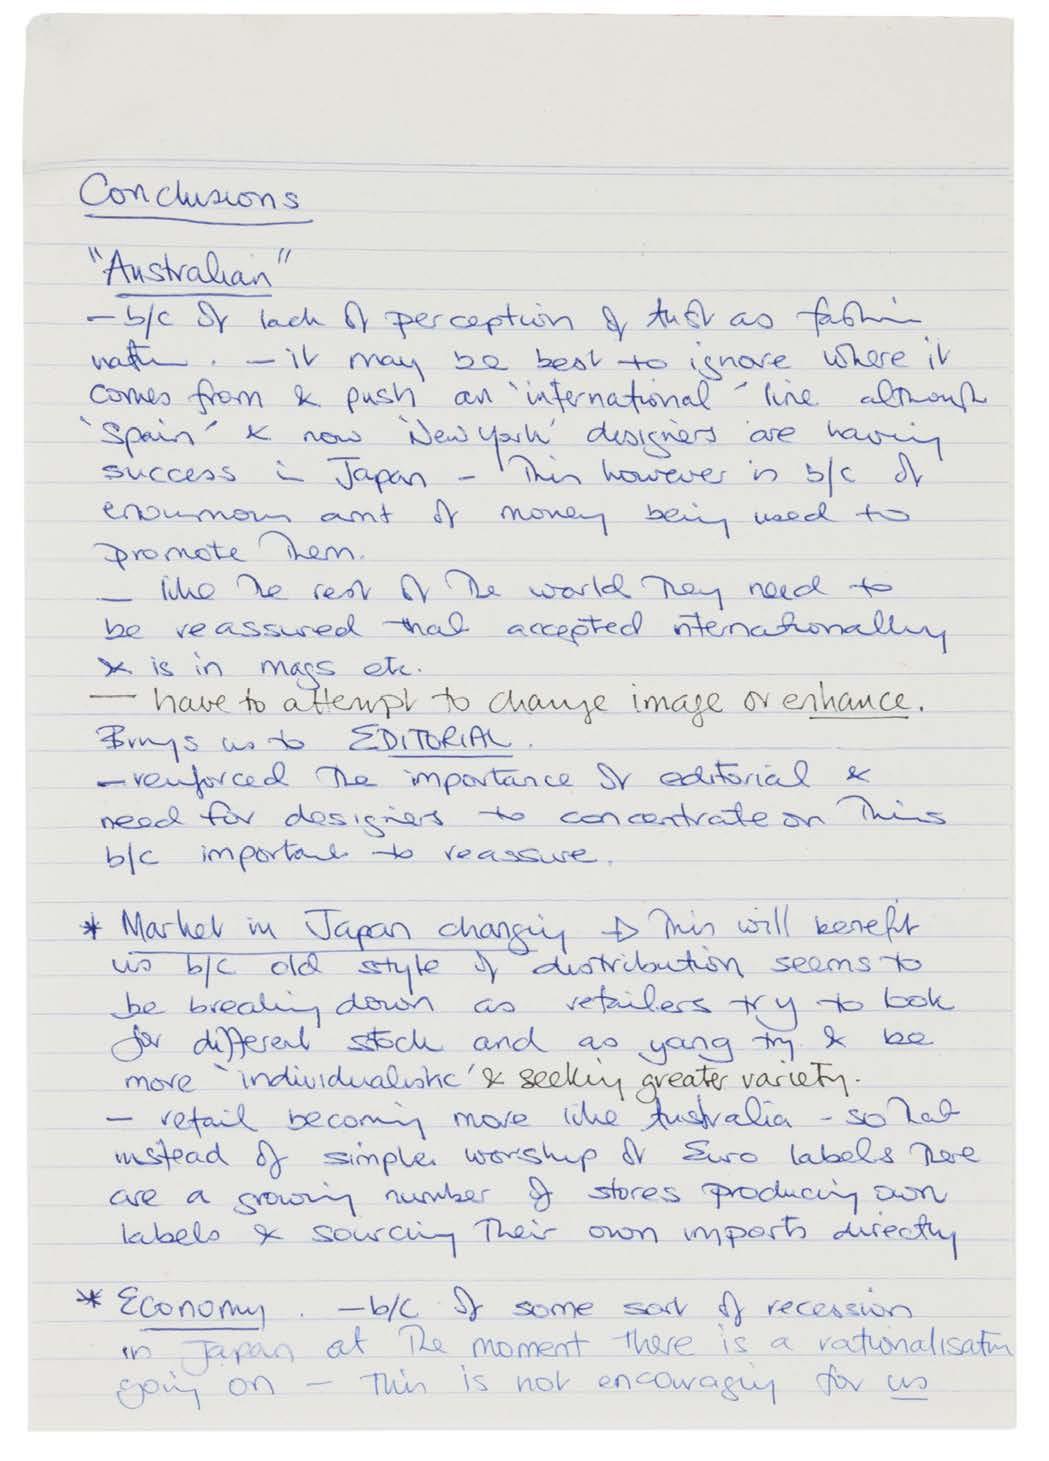 Conclusions
"Australian"
- b/c of lack of perception of Aust as fashion
nation. - it may be best to ignore where it
comes from & push an 'international' line although
'Spain' & now 'New York' designers are having
success in Japan - This however is b/c of
enourmous amt of money being used to
promote them.
- like the rest of the world they need to
be reassured that accepted internationally
& is in mags etc.
- have to attempt to change image or enhance.
Brings us to EDITORIAL.
- reinforced the importance of editorial &
need for designers to concentrate on this
b/c important to reassure.
* Market in Japan changing → This will benefit
us b/c old style of distribution seems to
be breaking down as retailers try to look
for different stock and as yang try & be
more 'individualistic' & seeking greater variety.
- retail becoming more like Australia - so that
instead of simple worship of Euro labels there
are a growing number of stores producing own
labels & sourcing their own imports directly
* Economy. - b/c of some sort of recession
in Japan at the moment there is a rationalisation
going on - this is not encouraging for us